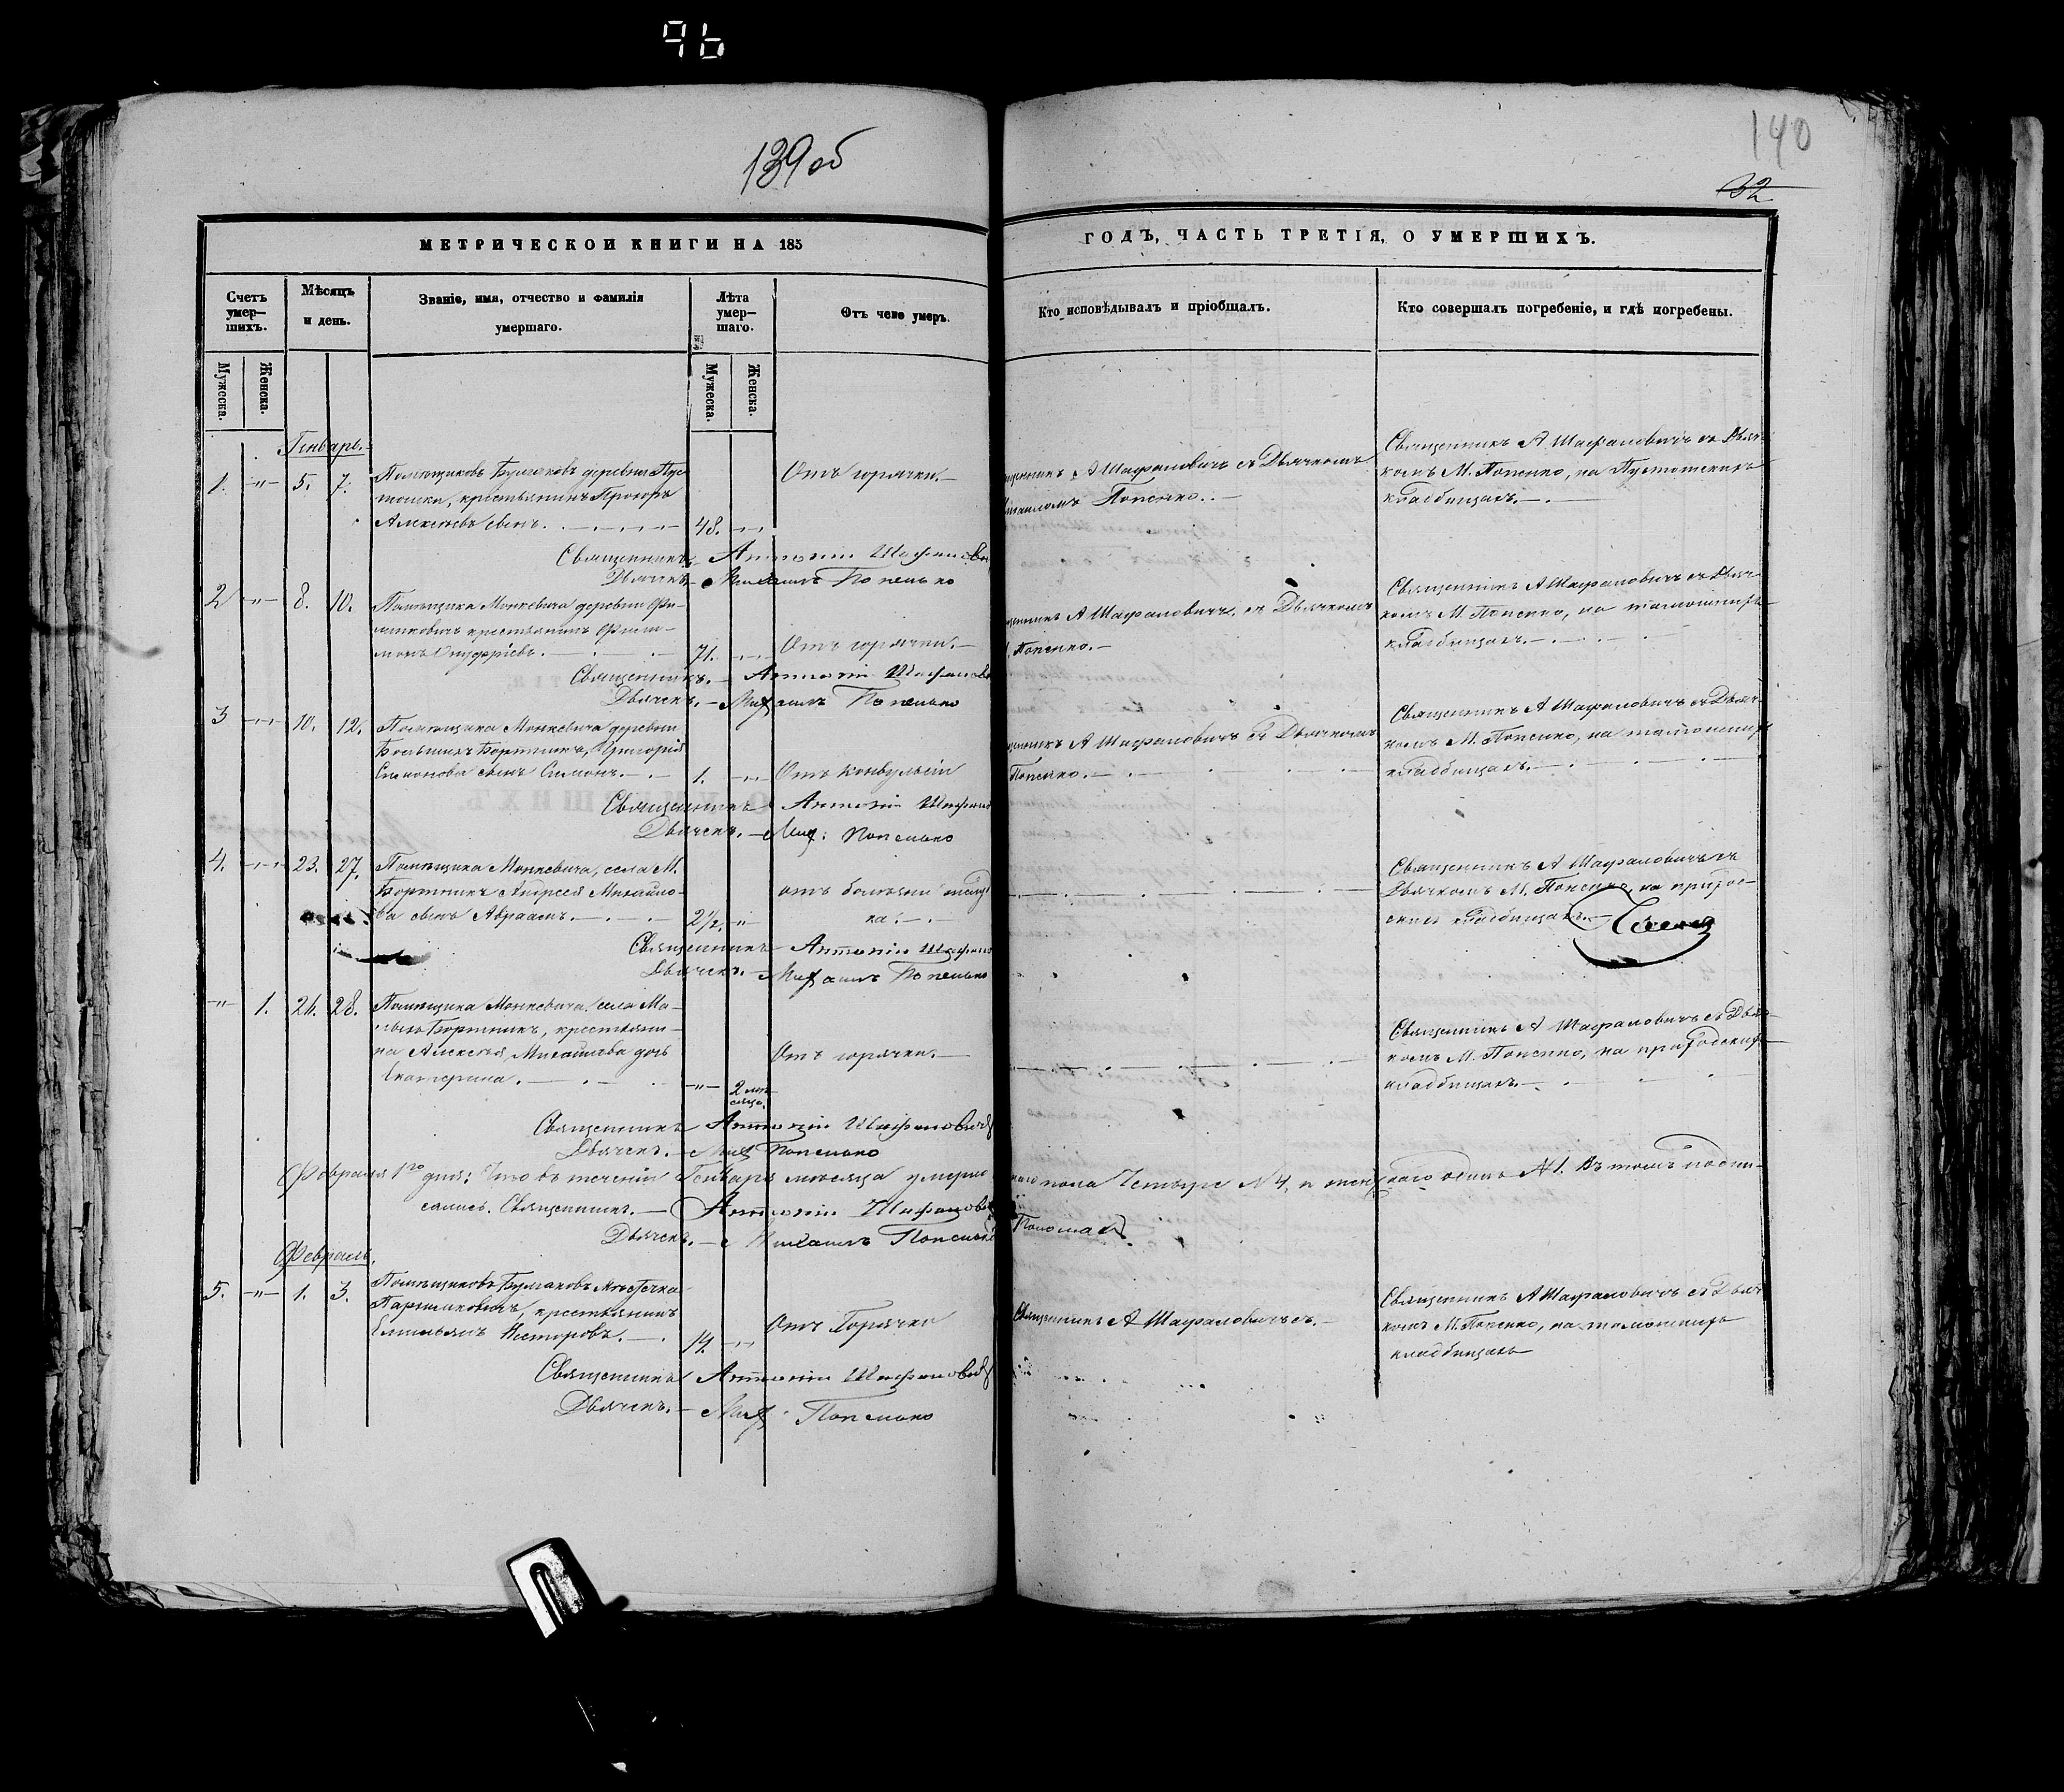 96
139 об
140
32
МЕТРИЧЕСКОЙ КНИГИ НА 185
ГОДЪ, ЧАСТЬ ТРЕТІЯ, О УМЕРШИХЪ.
Счетъ умер—шихъ.
Мѣсяцъ и день.
Званіе, имя, отчество и фамилія
умершаго.
Лѣта умер—шаго.
Отъ чего умеръ.
Кто исповѣдывалъ и пріобщалъ.
Кто совершалъ погребеніе, и гдѣ погребены.
Мужеска.
Женска.
Мужеска.
Женска.
Генварь.
1. -"- 5. 7.
Помѣщиковъ Булгаковъ деревни Пус
тошки, крестьянинъ Прохоръ
Алексѣевъ сынъ.
48.
Отъ горячки.
А Шафаловичъ съ Дьячкомъ
Попенко.
Священникъ А Шафаловичъ съ Дьяч
комъ М. Попенко, на Пустотскихъ
кладбищахъ.
Священникъ Антоній
Дьячекъ Михаилъ Попенько
2 -"- 8. 10.
Помѣщика Монкевича деревни Фи-
липковичъ крестьянинъ Фили-
монъ Онуфріевъ.
71.
Отъ горячки.
А Шафаловичъ, съ Дьячкомъ
Попенко.
Священникъ А Шафаловичъ съ Дьяч
комъ М. Попенко, на тамошнихъ
кладбищахъ.
Священникъ. Антоній
Дьячекъ. Михаилъ Попенько
3 -"- 10. 12.
Помѣщика Монкевича деревни
Большихъ Бортникъ, Григорія
Симонова сынъ Симонъ.
1. -"-
Отъ конвульсіи
А Шафаловичъ съ Дьячкомъ
Попенко.
Священникъ А Шафаловичъ съ Дьяч
комъ М. Попенко, на тамошнихъ
кладбищахъ.
Священникъ Антоній
Дьячекъ. Мих: Попенько
4. -"- 23. 27.
Помѣщика Монкевича, села М.
Бортникъ Андрея Михайло-
ва сынъ Авраамъ.
2½. -"-
отъ болѣзни
Священникъ А Шафаловичъ съ
Дьячкомъ М. Попенко, на приход-
скихъ кладбищахъ.
Священникъ Антоній
Дьячекъ. Михаилъ Попенько
-"- 1. 24. 28.
Помѣщика Монкевича, села Ма-
лыхъ Бортникъ, крестьяни-
на Алексѣя Михайлова дочь
Екатерина.
-"- 2 мѣ
сяца.
Отъ горячки.
Священникъ А Шафаловичъ съ Дьяч
комъ М. Попенко, на приходскихъ
кладбищахъ.
Священникъ Антоній Шафаловичъ
Дьячекъ. Мих Попенько
Февраля 1го дня: Что въ теченіи Генваря мѣсяца умерло
пола Четыре №4, и женскаго одинъ №1. Въ томъ подпи-
сались. Священникъ. Антоній
Дьячекъ. Михаилъ Попенько
Пономарь
Февраль.
5. -"- 1. 3.
Помѣщиковъ Булгаковъ Мѣстечка
крестьянинъ
Емельянъ Несторовъ.
14. -"-
Отъ Горячки
Священникъ А Шафаловичъ.
Священникъ А Шафаловичъ съ Дьяч
комъ М. Попенко, на тамошнихъ
кладбищахъ
Священникъ Антоній Шафаловичъ
Дьячекъ. Мих Попенько